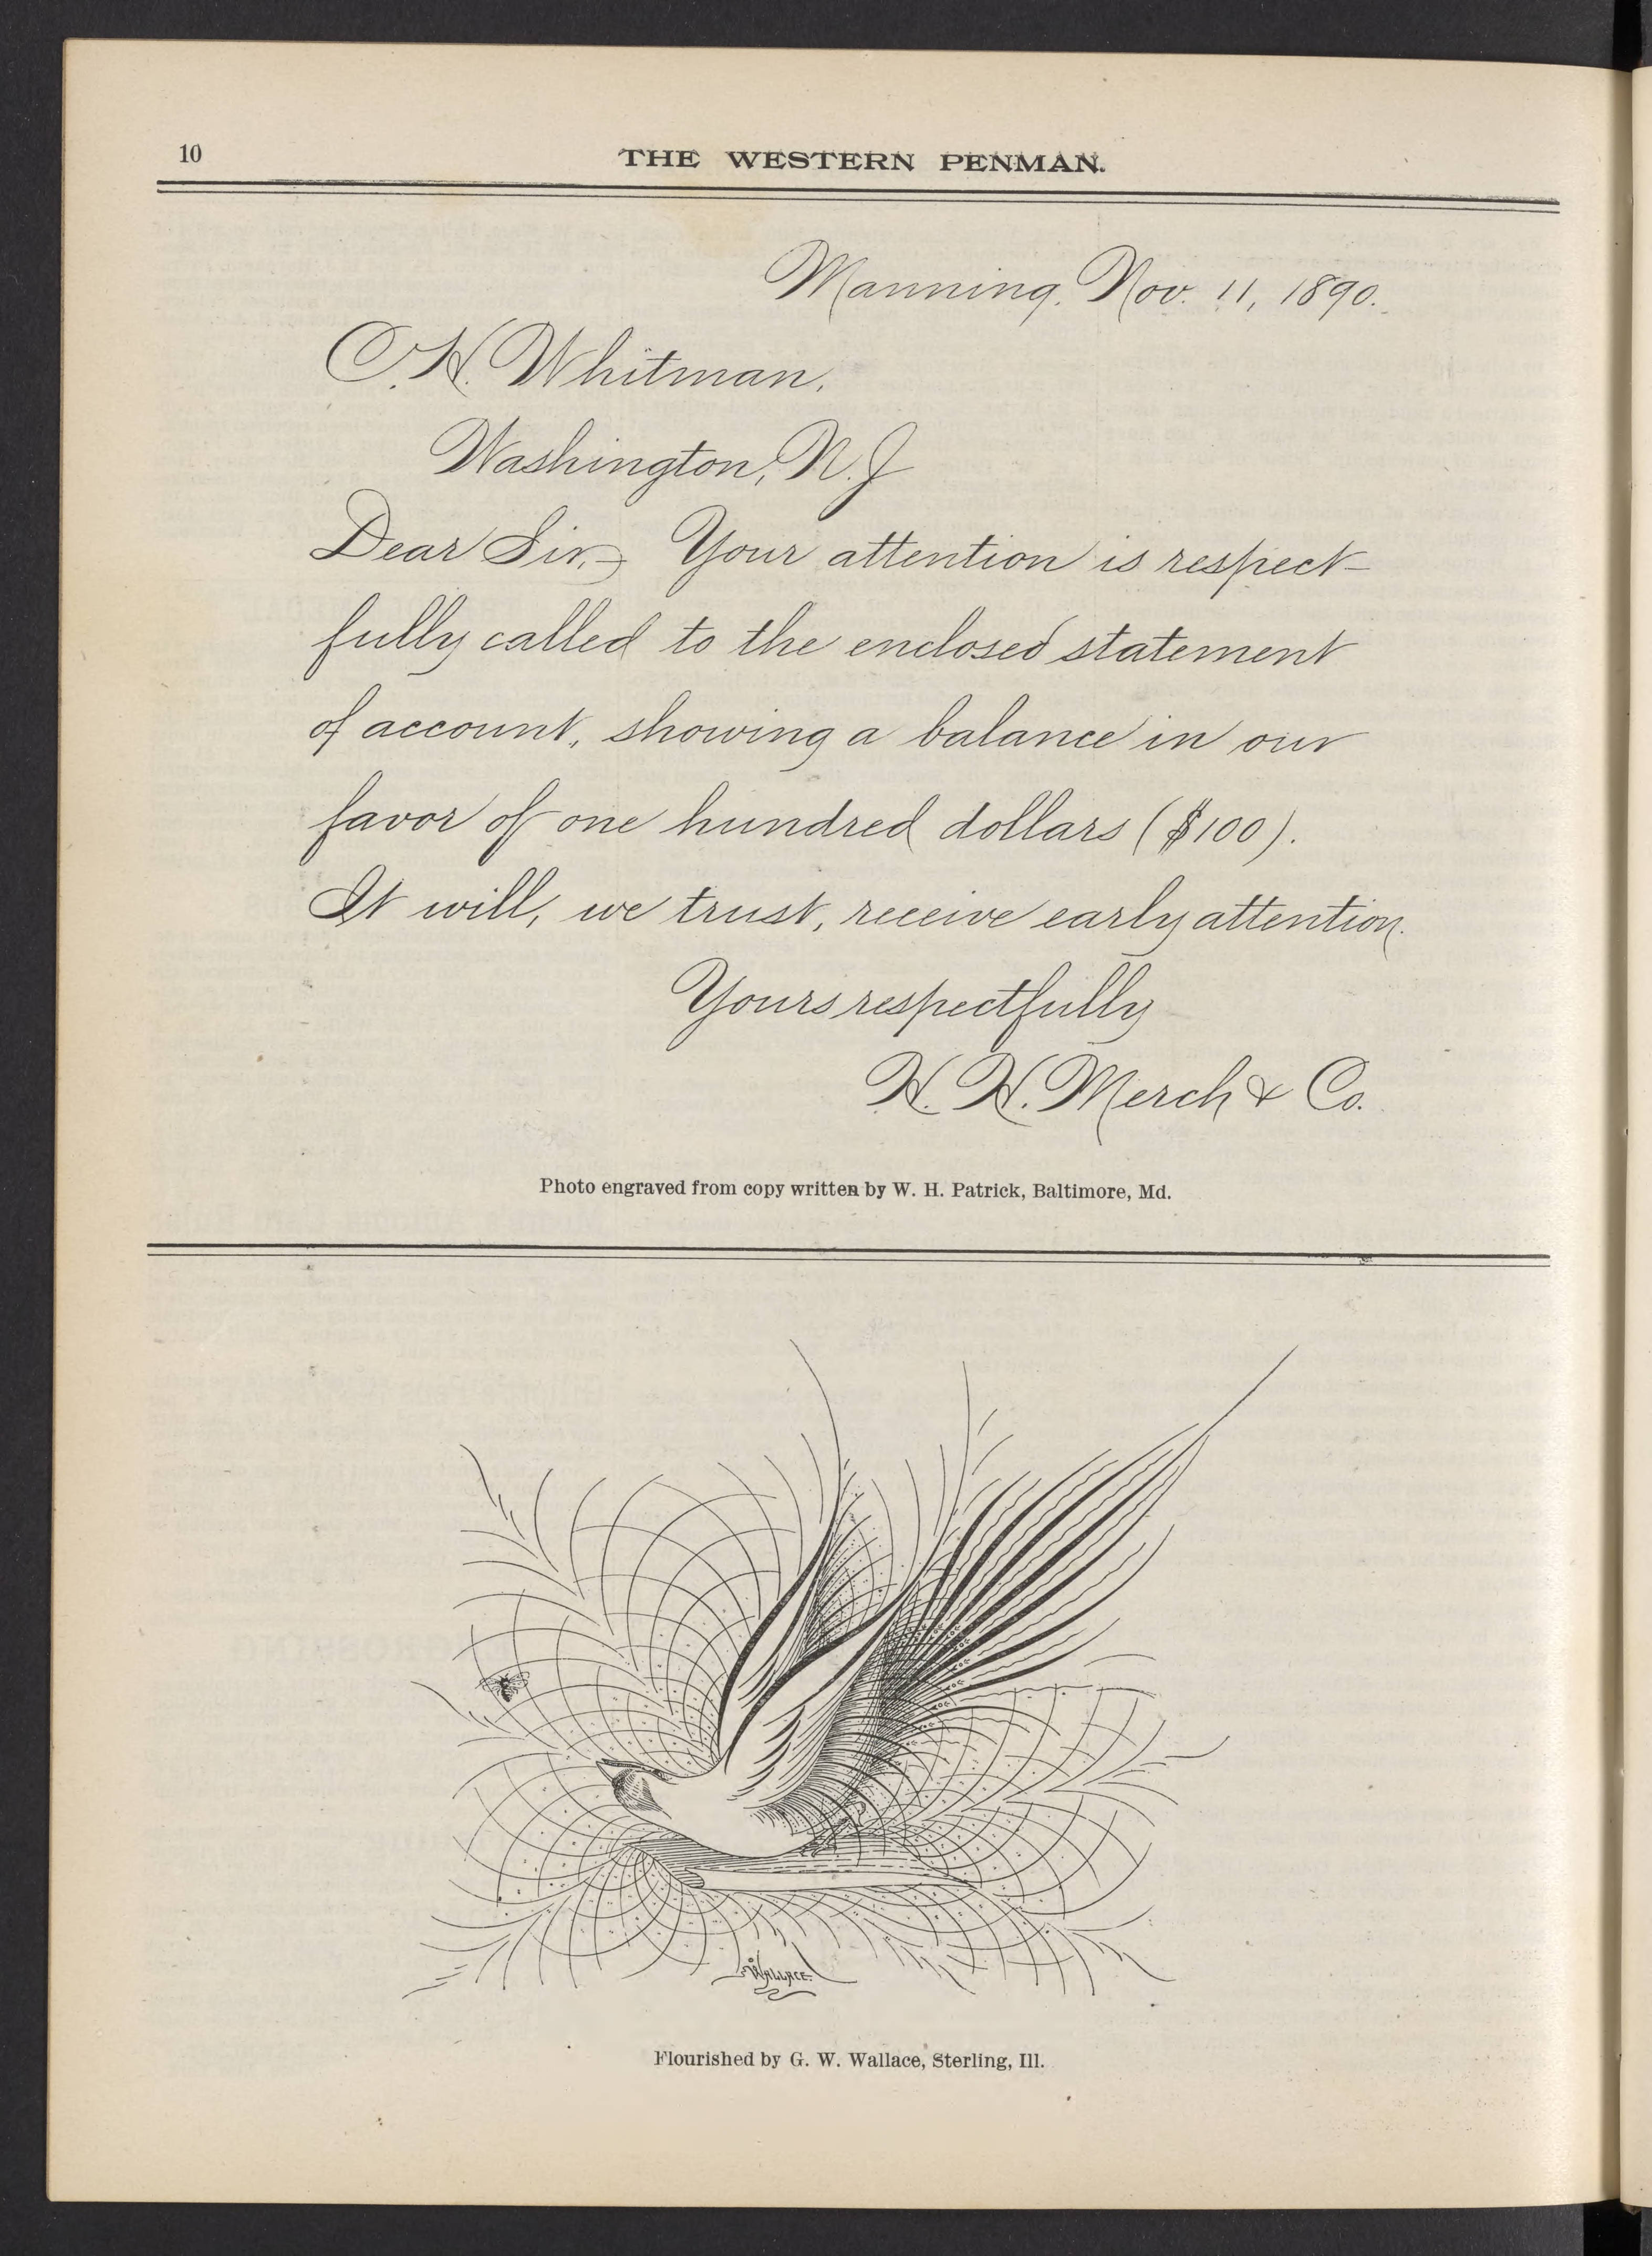 10
THE WESTERN PENMAN.
Manning, Nov. 11, 1890.
C. H. Whitman,
Washington, N. J
Dear Sir,- Your attention is respect-
fully called to the enclosed statement
of account, showing a balance in our
favor of one hundred dollars ($100).
It will, we trust, receive early attention.
Yours respectfully
H. H. Merch & Co.
Photo engraved from copy written by W. H. Patrick, Baltimore, Md.
WALLACE.
Flourished by G. W. Wallace, Sterling, Ill.